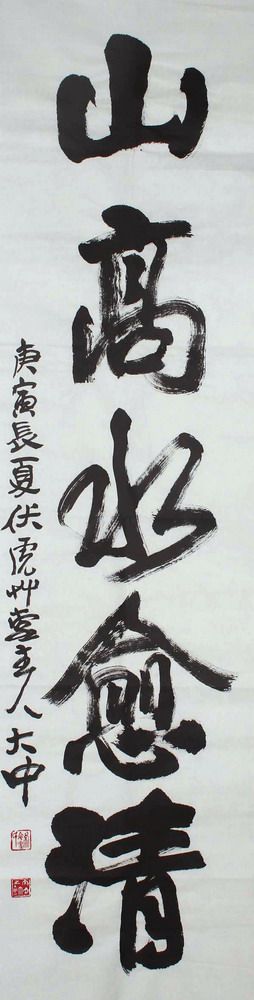 山高水愈清
庚寅長夏伏虎艸堂主人大中